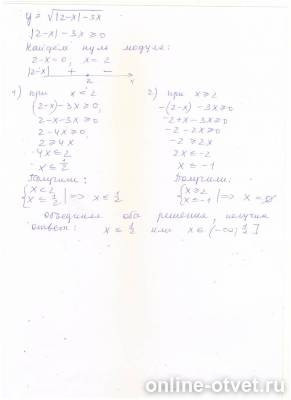 y = √|2-x|-3x
|2-x|-3x ≥ 0
Найдём нуль модуля:
2-x=0, x=2
|2-x| + -
2 x
1) при x < 2
(2-x)-3x ≥ 0,
2-x-3x ≥ 0
2-4x ≥ 0,
2 ≥ 4x
4x ≤ 2
x ≤ 1/2
Получили:
{x < 2
x ≤ 1/2 | => x ≤ 1/2
2) при x ≥ 2
-(2-x)-3x ≥ 0
-2+x-3x ≥ 0
-2-2x ≥ 0
-2 ≥ 2x
2x ≤ -2
x ≤ -1
Получили:
{x ≥ 2
x ≤ -1 | => x = ∅
Объединяя оба решения, получим
ответ: x ≤ 1/2 или x ∈ (-∞; 1/2]
online-otvet.ru